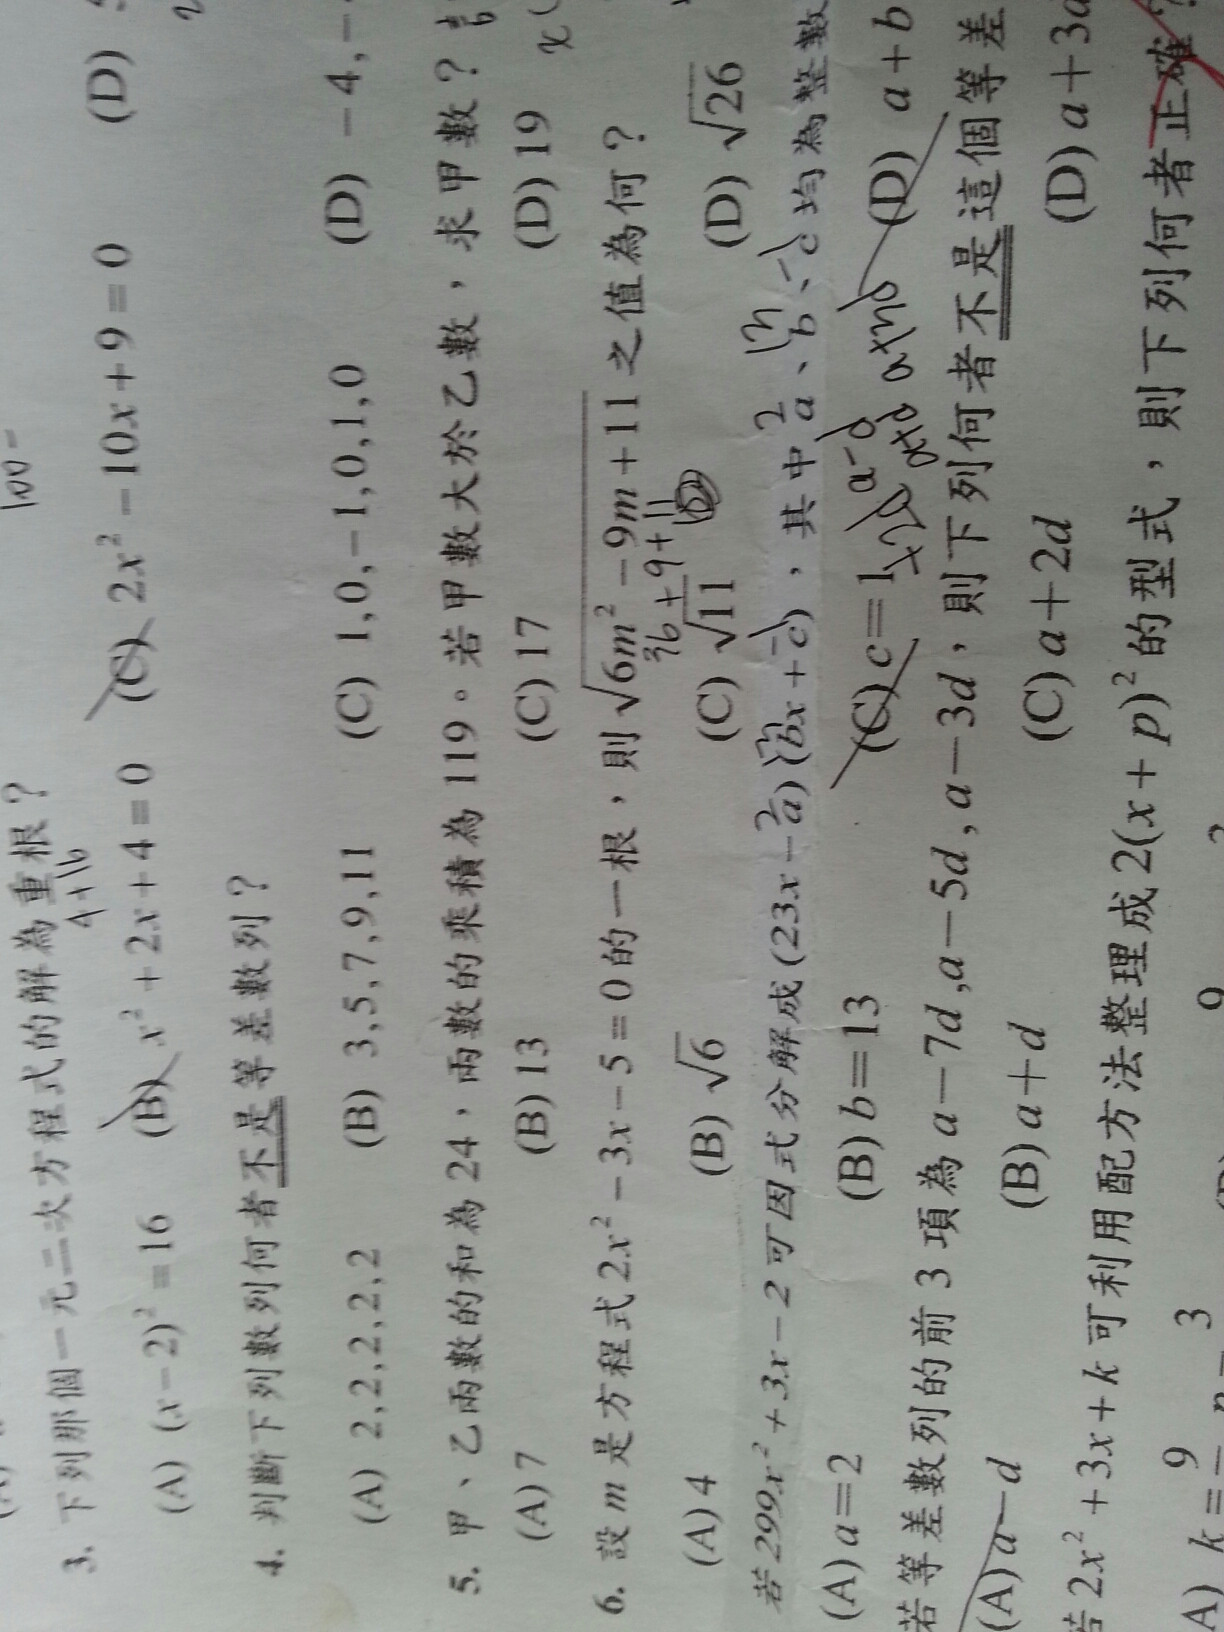 100 -
3. 下列那個一元二次方程式的解為重根？
4+16
(A) (x－2)²＝16 (B) x²＋2x＋4＝0 (C) 2x²－10x＋9＝0 (D)
4. 判斷下列數列何者不是等差數列？
(A) 2,2,2,2,2 (B) 3,5,7,9,11 (C) 1,0,−1,0,1,0 (D) －4,－
5. 甲、乙兩數的和為24，兩數的乘積為119。若甲數大於乙數，求甲數？
(A) 7 (B) 13 (C) 17 (D) 19
x(
6. 設m是方程式2x²－3x－5＝0的一根，則√6m²－9m＋11之值為何？
36+9+11
(A) 4 (B) √6 (C) √11 (D) √26
2 13 1
若299x²＋3x－2可因式分解成(23x－a)(bx＋c)，其中a、b、c均為整數
(A) a＝2 (B) b＝13 (C) c＝1 (D) a＋b
+2d a-d a+d
若等差數列的前3項為a－7d,a－5d,a－3d，則下列何者不是這個等差
(A) a－d (B) a＋d (C) a＋2d (D) a＋3d
若2x²＋3x＋k可利用配方法整理成2(x＋p)²的型式，則下列何者正確？
A) k＝9 3